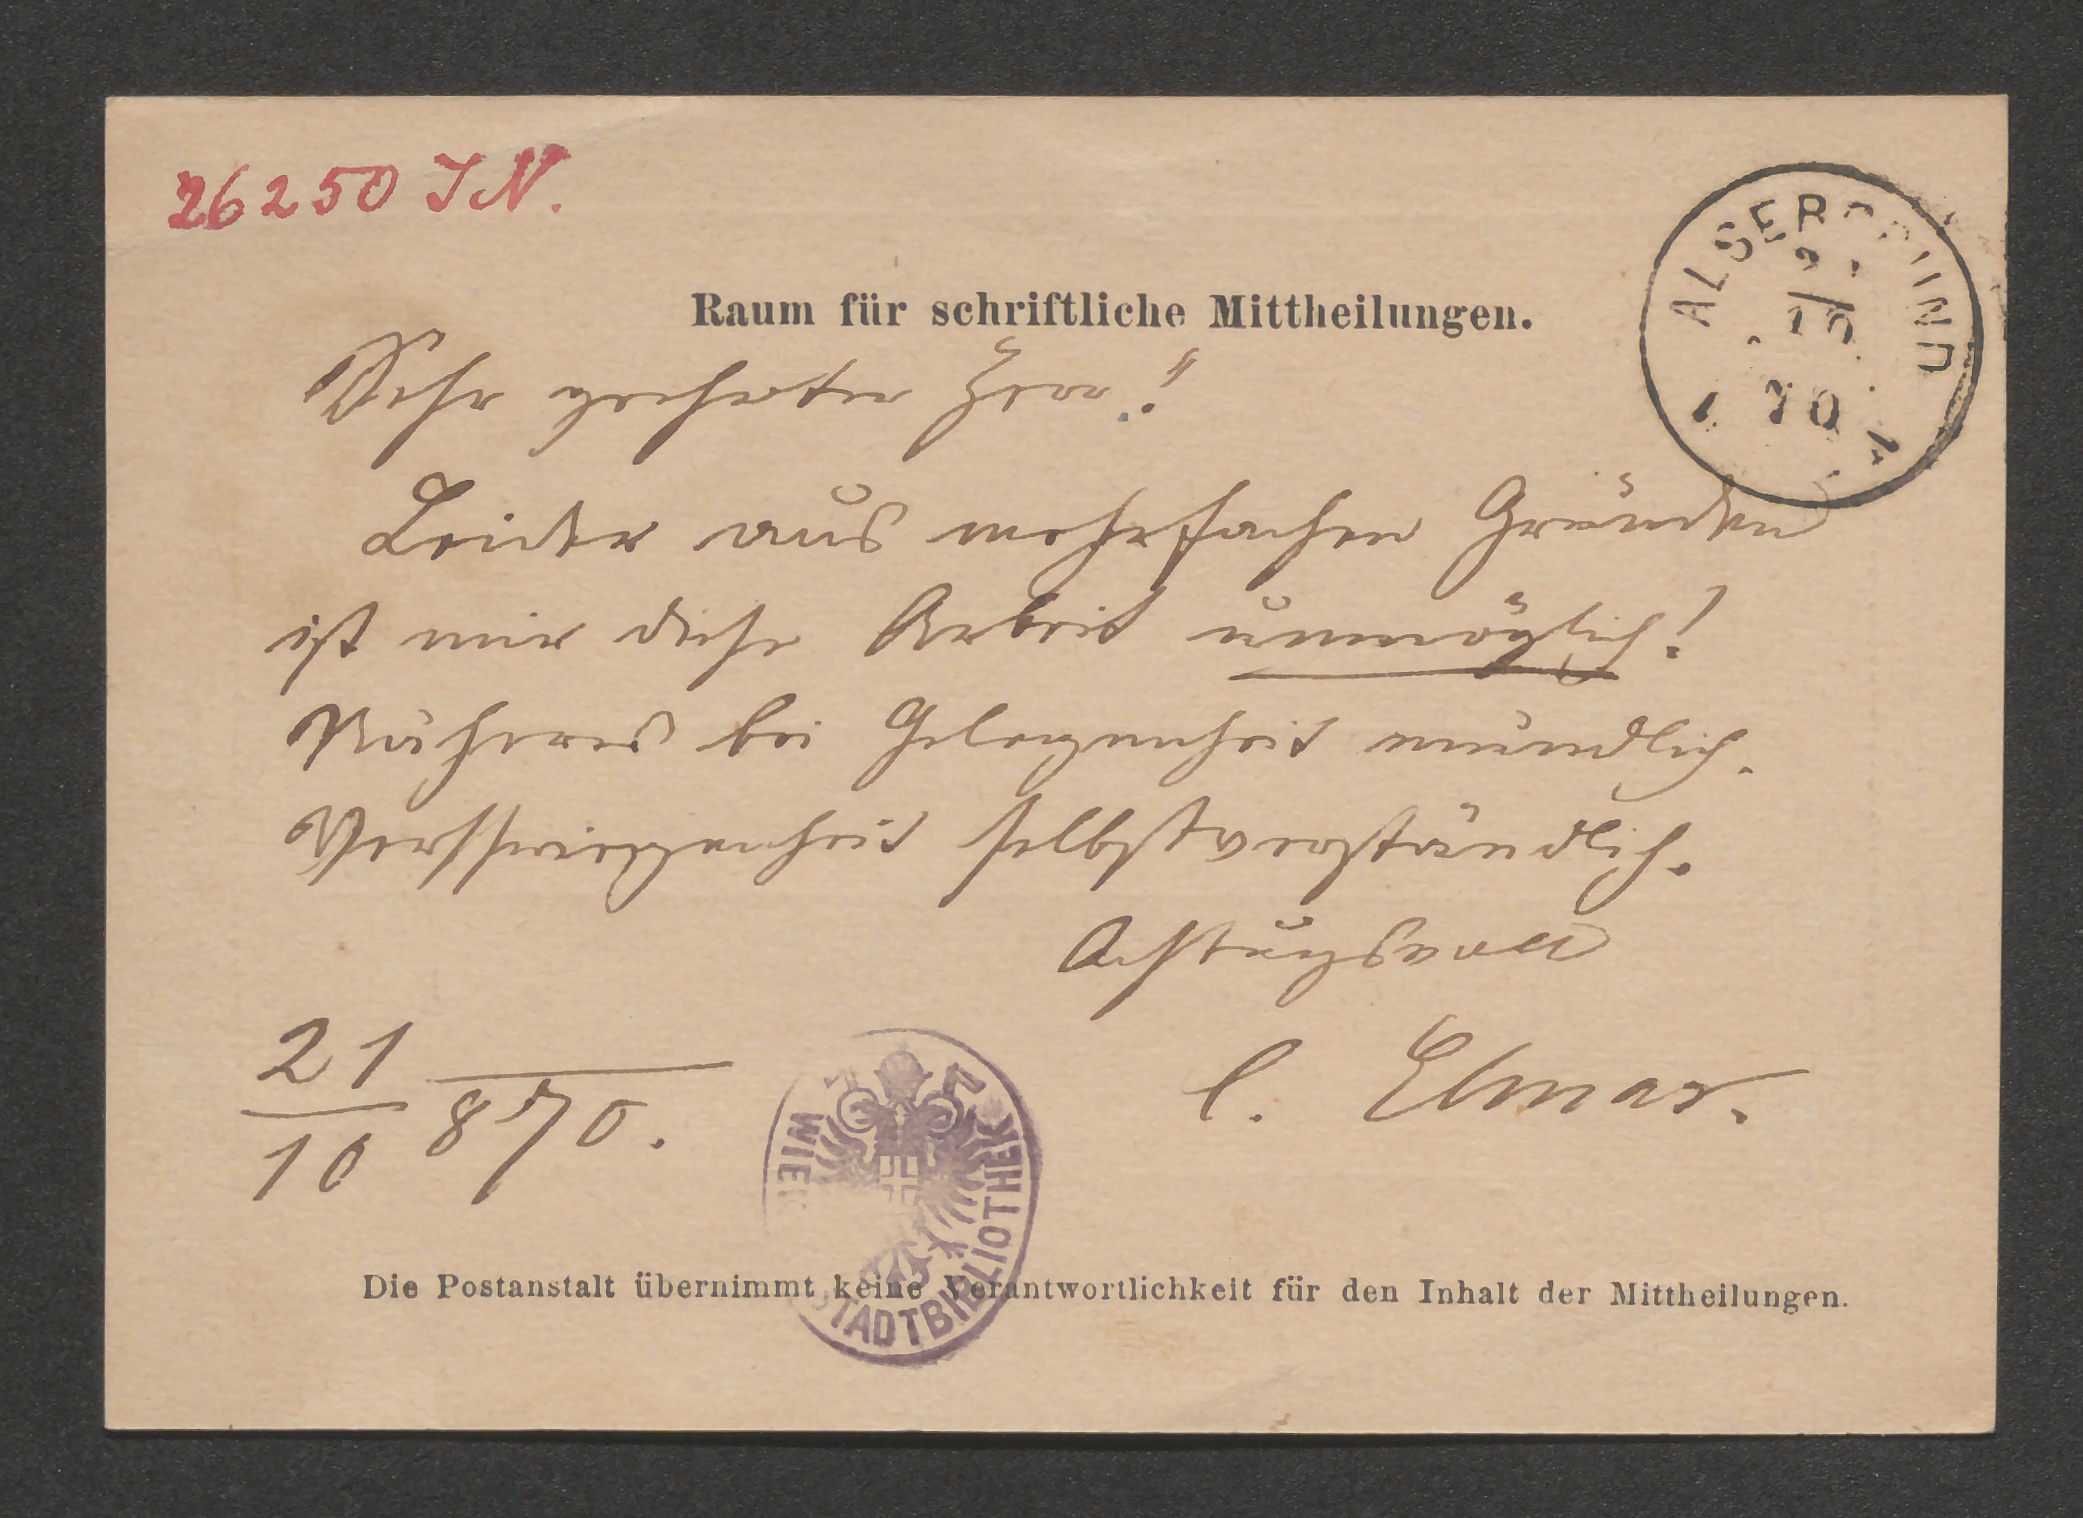 26250 JN.
ALSERGRUND
21
10
70
Raum für schriftliche Mittheilungen.
Sehr geehrter Herr!
Leider aus mehrfachen Gründen
ist mir diese Arbeit unmöglich!
Näheres bei Gelegenheit mündlich.
Verschwiegenheit selbstverständlich.
Achtungsvoll
C. Elmar.
21
10 870.
WIENER STADTBIBLIOTHEK
Die Postanstalt übernimmt keine Verantwortlichkeit für den Inhalt der Mittheilungen.